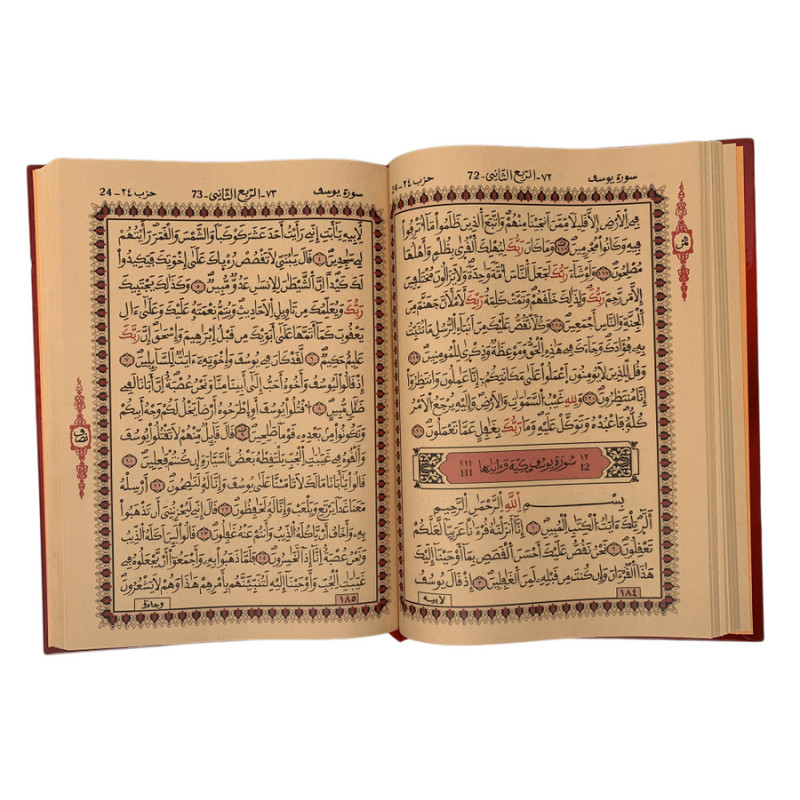 سورة يوسف
72 -الربع الثاني- ٧٢
حزب ٢٤ - 24
ثمن
في الأرض إلا قليلا ممن أنجينا منهم واتبع الذين ظلموا ما أترفوا
فيه وكانوا مجرمين وما كان ربك ليهلك القرى بظلم وأهلها
مصلحون ولو شاء ربك لجعل الناس أمة وحدة ولا يزالون مختلفين
إلا من رحم ربك ولذلك خلقهم وتمت كلمة ربك لأملأن جهنم من
الجنة والناس أجمعين وكلا نقص عليك من أنباء الرسل ما نثبت
به فؤادك وجاءك في هذه الحق وموعظة وذكرى للمومنين
وقل للذين لا يومنون اعملوا على مكانتكم إنا عملون وانتظروا
إنا منتظرون ولله غيب السموات والأرض وإليه يرجع الأمر
كله فاعبده وتوكل عليه وما ربك بغفل عما تعملون
١٢ 12 سورة يوسف مكية وءايتها ١١١ 111
بسم الله الرحمن الرحيم
ألر تلك ءايت الكتب المبين إنا أنزلنه قرءنا عربيا لعلكم
تعقلون نحن نقص عليك أحسن القصص بما أوحينا إليك
هذا القرءان وإن كنت من قبله لمن الغفلين إذ قال يوسف
١٨٤
لأبيه
سورة يوسف
73 -الربع الثاني- ٧٣
حزب ٢٤ - 24
نصف
لأبيه يأبت إني رأيت أحد عشر كوكبا والشمس والقمر رأيتهم
لي سجدين قال يبني لا تقصص رءياك على إخوتك فيكيدوا
لك كيدا إن الشيطن للإنسن عدو مبين وكذلك يجتبيك
ربك ويعلمك من تاويل الأحاديث ويتم نعمته عليك وعلى ءال
يعقوب كما أتمها على أبويك من قبل إبرهيم وإسحق إن ربك
عليم حكيم لقد كان في يوسف وإخوته ءايت للسايلين
إذ قالوا ليوسف وأخوه أحب إلى أبينا منا ونحن عصبة إن أبانا لفي
ضلل مبين اقتلوا يوسف أو اطرحوه أرضا يخل لكم وجه أبيكم
وتكونوا من بعده قوما صلحين قال قايل منهم لا تقتلوا يوسف
وألقوه في غيبت الجب يلتقطه بعض السيارة إن كنتم فعلين
قالوا يأبانا مالك لا تامنا على يوسف وإنا له لنصحون أرسله
معنا غدا يرتع ويلعب وإنا له لحفظون قال إني ليحزنني أن تذهبوا
به وأخاف أن ياكله الذيب وأنتم عنه غفلون قالوا لين اكله الذيب
ونحن عصبة إنا إذا لخسرون فلما ذهبوا به وأجمعوا أن يجعلوه في
غيبت الجب وأوحينا إليه لتنبئنهم بأمرهم هذا وهم لا يشعرون
١٨٥
وجاءو